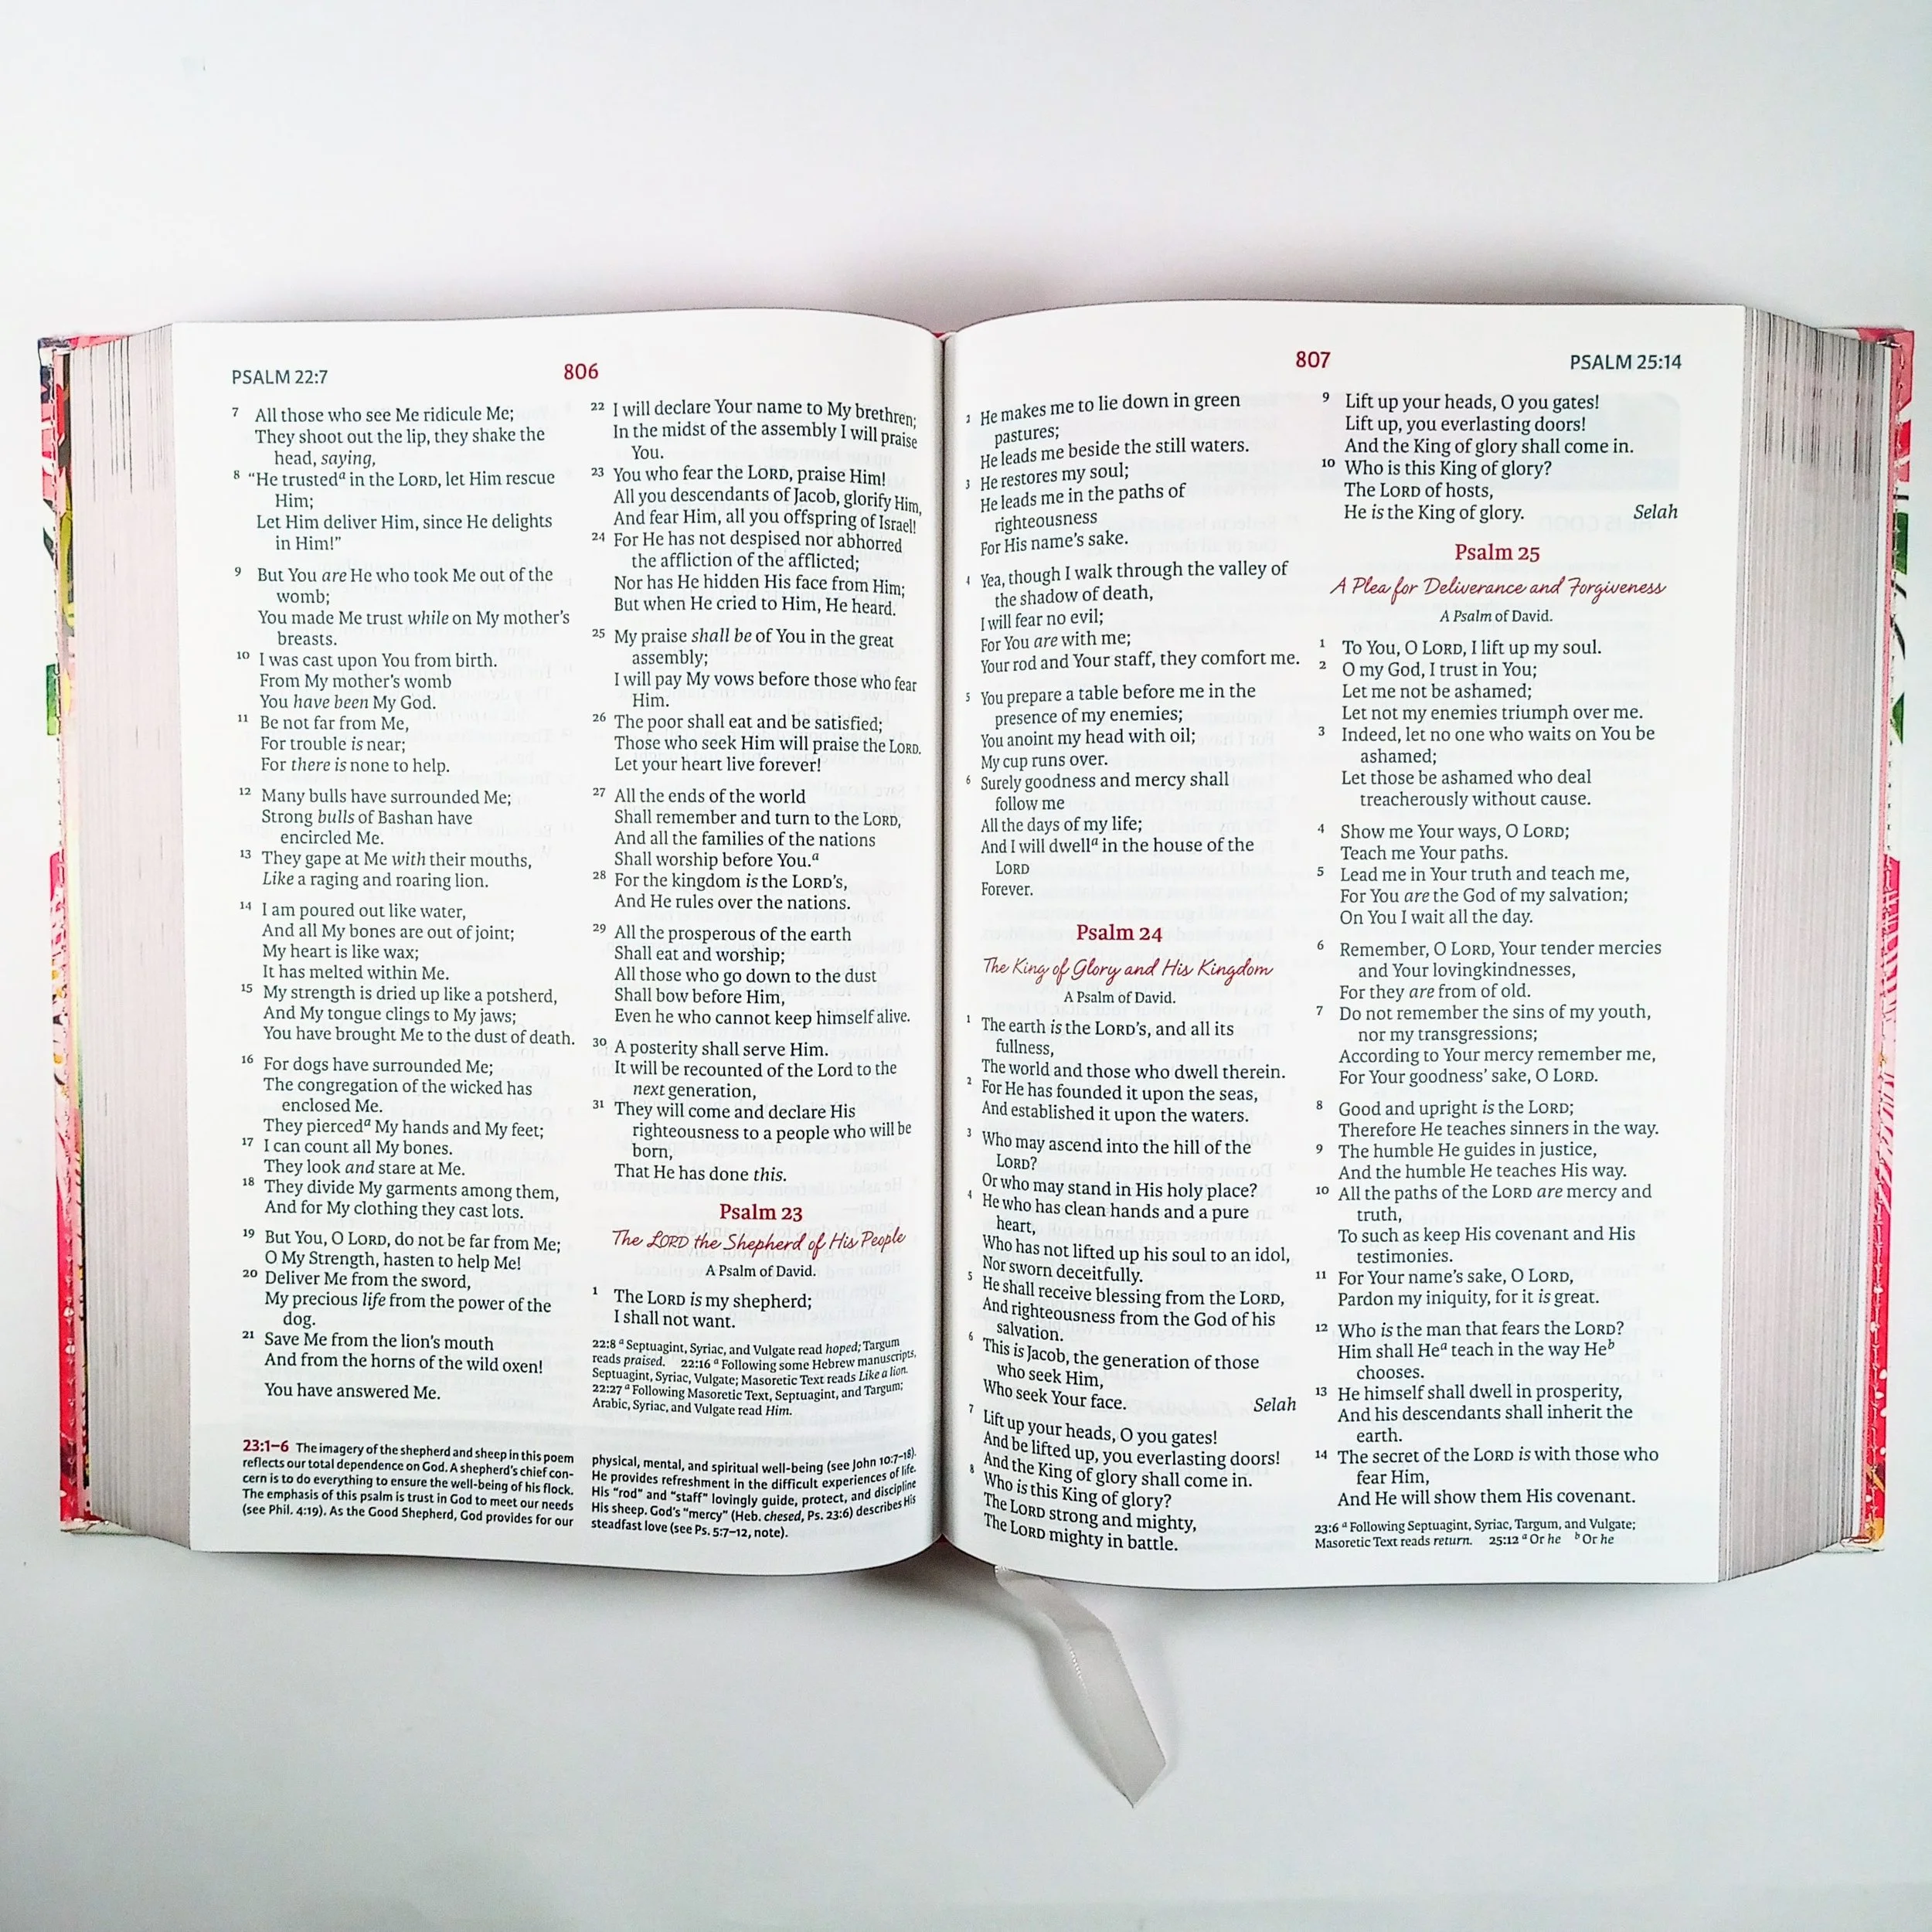 PSALM 22:7
806
7 All those who see Me ridicule Me;
They shoot out the lip, they shake the
head, saying,
8 “He trustedᵃ in the LORD, let Him rescue
Him;
Let Him deliver Him, since He delights
in Him!”
9 But You are He who took Me out of the
womb;
You made Me trust while on My mother’s
breasts.
10 I was cast upon You from birth.
From My mother’s womb
You have been My God.
11 Be not far from Me,
For trouble is near;
For there is none to help.
12 Many bulls have surrounded Me;
Strong bulls of Bashan have
encircled Me.
13 They gape at Me with their mouths,
Like a raging and roaring lion.
14 I am poured out like water,
And all My bones are out of joint;
My heart is like wax;
It has melted within Me.
15 My strength is dried up like a potsherd,
And My tongue clings to My jaws;
You have brought Me to the dust of death.
16 For dogs have surrounded Me;
The congregation of the wicked has
enclosed Me.
They piercedᵃ My hands and My feet;
17 I can count all My bones.
They look and stare at Me.
18 They divide My garments among them,
And for My clothing they cast lots.
19 But You, O LORD, do not be far from Me;
O My Strength, hasten to help Me!
20 Deliver Me from the sword,
My precious life from the power of the
dog.
21 Save Me from the lion’s mouth
And from the horns of the wild oxen!
You have answered Me.
22 I will declare Your name to My brethren;
In the midst of the assembly I will praise
You.
23 You who fear the LORD, praise Him!
All you descendants of Jacob, glorify Him,
And fear Him, all you offspring of Israel!
24 For He has not despised nor abhorred
the affliction of the afflicted;
Nor has He hidden His face from Him;
But when He cried to Him, He heard.
25 My praise shall be of You in the great
assembly;
I will pay My vows before those who fear
Him.
26 The poor shall eat and be satisfied;
Those who seek Him will praise the LORD.
Let your heart live forever!
27 All the ends of the world
Shall remember and turn to the LORD,
And all the families of the nations
Shall worship before You.ᵃ
28 For the kingdom is the LORD’s,
And He rules over the nations.
29 All the prosperous of the earth
Shall eat and worship;
All those who go down to the dust
Shall bow before Him,
Even he who cannot keep himself alive.
30 A posterity shall serve Him.
It will be recounted of the Lord to the
next generation,
31 They will come and declare His
righteousness to a people who will be
born,
That He has done this.
Psalm 23
The LORD the Shepherd of His People
A Psalm of David.
1 The LORD is my shepherd;
I shall not want.
22:8 ᵃ Septuagint, Syriac, and Vulgate read hoped; Targum
reads praised. 22:16 ᵃ Following some Hebrew manuscripts,
Septuagint, Syriac, Vulgate; Masoretic Text reads Like a lion.
22:27 ᵃ Following Masoretic Text, Septuagint, and Targum;
Arabic, Syriac, and Vulgate read Him.
23:1–6 The imagery of the shepherd and sheep in this poem
reflects our total dependence on God. A shepherd’s chief con-
cern is to do everything to ensure the well-being of his flock.
The emphasis of this psalm is trust in God to meet our needs
(see Phil. 4:19). As the Good Shepherd, God provides for our
physical, mental, and spiritual well-being (see John 10:7–18).
He provides refreshment in the difficult experiences of life.
His “rod” and “staff” lovingly guide, protect, and discipline
His sheep. God’s “mercy” (Heb. chesed, Ps. 23:6) describes His
steadfast love (see Ps. 5:7–12, note).
807
PSALM 25:14
2 He makes me to lie down in green
pastures;
He leads me beside the still waters.
3 He restores my soul;
He leads me in the paths of
righteousness
For His name’s sake.
4 Yea, though I walk through the valley of
the shadow of death,
I will fear no evil;
For You are with me;
Your rod and Your staff, they comfort me.
5 You prepare a table before me in the
presence of my enemies;
You anoint my head with oil;
My cup runs over.
6 Surely goodness and mercy shall
follow me
All the days of my life;
And I will dwellᵃ in the house of the
LORD
Forever.
Psalm 24
The King of Glory and His Kingdom
A Psalm of David.
1 The earth is the LORD’s, and all its
fullness,
The world and those who dwell therein.
2 For He has founded it upon the seas,
And established it upon the waters.
3 Who may ascend into the hill of the
LORD?
Or who may stand in His holy place?
4 He who has clean hands and a pure
heart,
Who has not lifted up his soul to an idol,
Nor sworn deceitfully.
5 He shall receive blessing from the LORD,
And righteousness from the God of his
salvation.
6 This is Jacob, the generation of those
who seek Him,
Who seek Your face. Selah
7 Lift up your heads, O you gates!
And be lifted up, you everlasting doors!
And the King of glory shall come in.
8 Who is this King of glory?
The LORD strong and mighty,
The LORD mighty in battle.
9 Lift up your heads, O you gates!
Lift up, you everlasting doors!
And the King of glory shall come in.
10 Who is this King of glory?
The LORD of hosts,
He is the King of glory. Selah
Psalm 25
A Plea for Deliverance and Forgiveness
A Psalm of David.
1 To You, O LORD, I lift up my soul.
2 O my God, I trust in You;
Let me not be ashamed;
Let not my enemies triumph over me.
3 Indeed, let no one who waits on You be
ashamed;
Let those be ashamed who deal
treacherously without cause.
4 Show me Your ways, O LORD;
Teach me Your paths.
5 Lead me in Your truth and teach me,
For You are the God of my salvation;
On You I wait all the day.
6 Remember, O LORD, Your tender mercies
and Your lovingkindnesses,
For they are from of old.
7 Do not remember the sins of my youth,
nor my transgressions;
According to Your mercy remember me,
For Your goodness’ sake, O LORD.
8 Good and upright is the LORD;
Therefore He teaches sinners in the way.
9 The humble He guides in justice,
And the humble He teaches His way.
10 All the paths of the LORD are mercy and
truth,
To such as keep His covenant and His
testimonies.
11 For Your name’s sake, O LORD,
Pardon my iniquity, for it is great.
12 Who is the man that fears the LORD?
Him shall Heᵃ teach in the way Heᵇ
chooses.
13 He himself shall dwell in prosperity,
And his descendants shall inherit the
earth.
14 The secret of the LORD is with those who
fear Him,
And He will show them His covenant.
23:6 ᵃ Following Septuagint, Syriac, Targum, and Vulgate;
Masoretic Text reads return. 25:12 ᵃ Or he ᵇ Or he